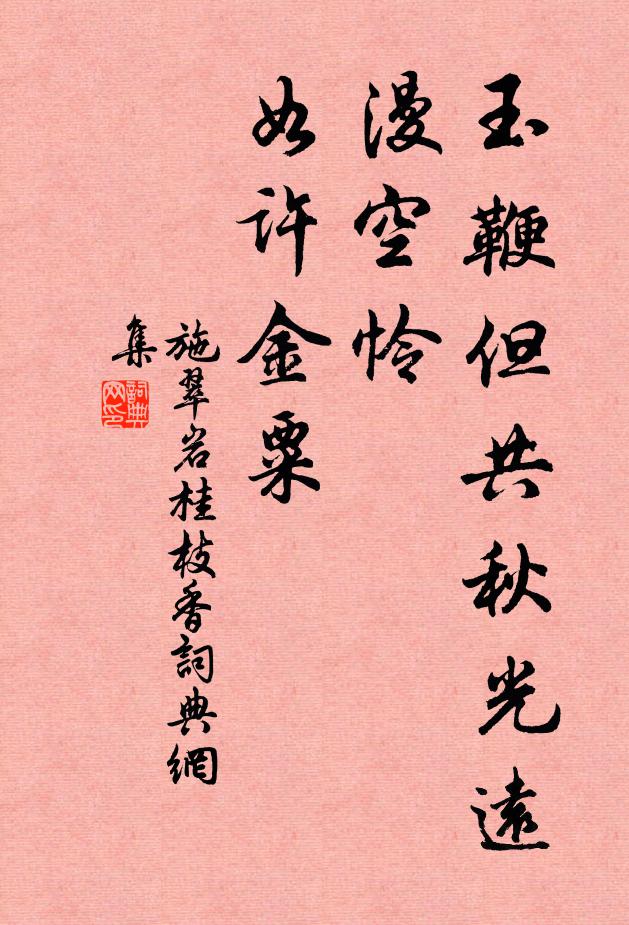 玉鞭但共秋光遠
漫空怜
如許金粟
施翠岩桂枝香詞典網
集
詞典
网印